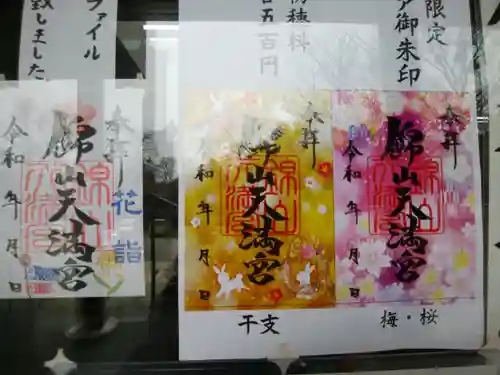 限定
ア御朱印
初穂料
五百円
ファイル
致しました
奉拝
錦山天満宮
令和 年 月 日
奉拝
錦山天満宮
令和 年 月 日
干支
奉拝
錦山天満宮
花詣
令和 年 月
梅・桜